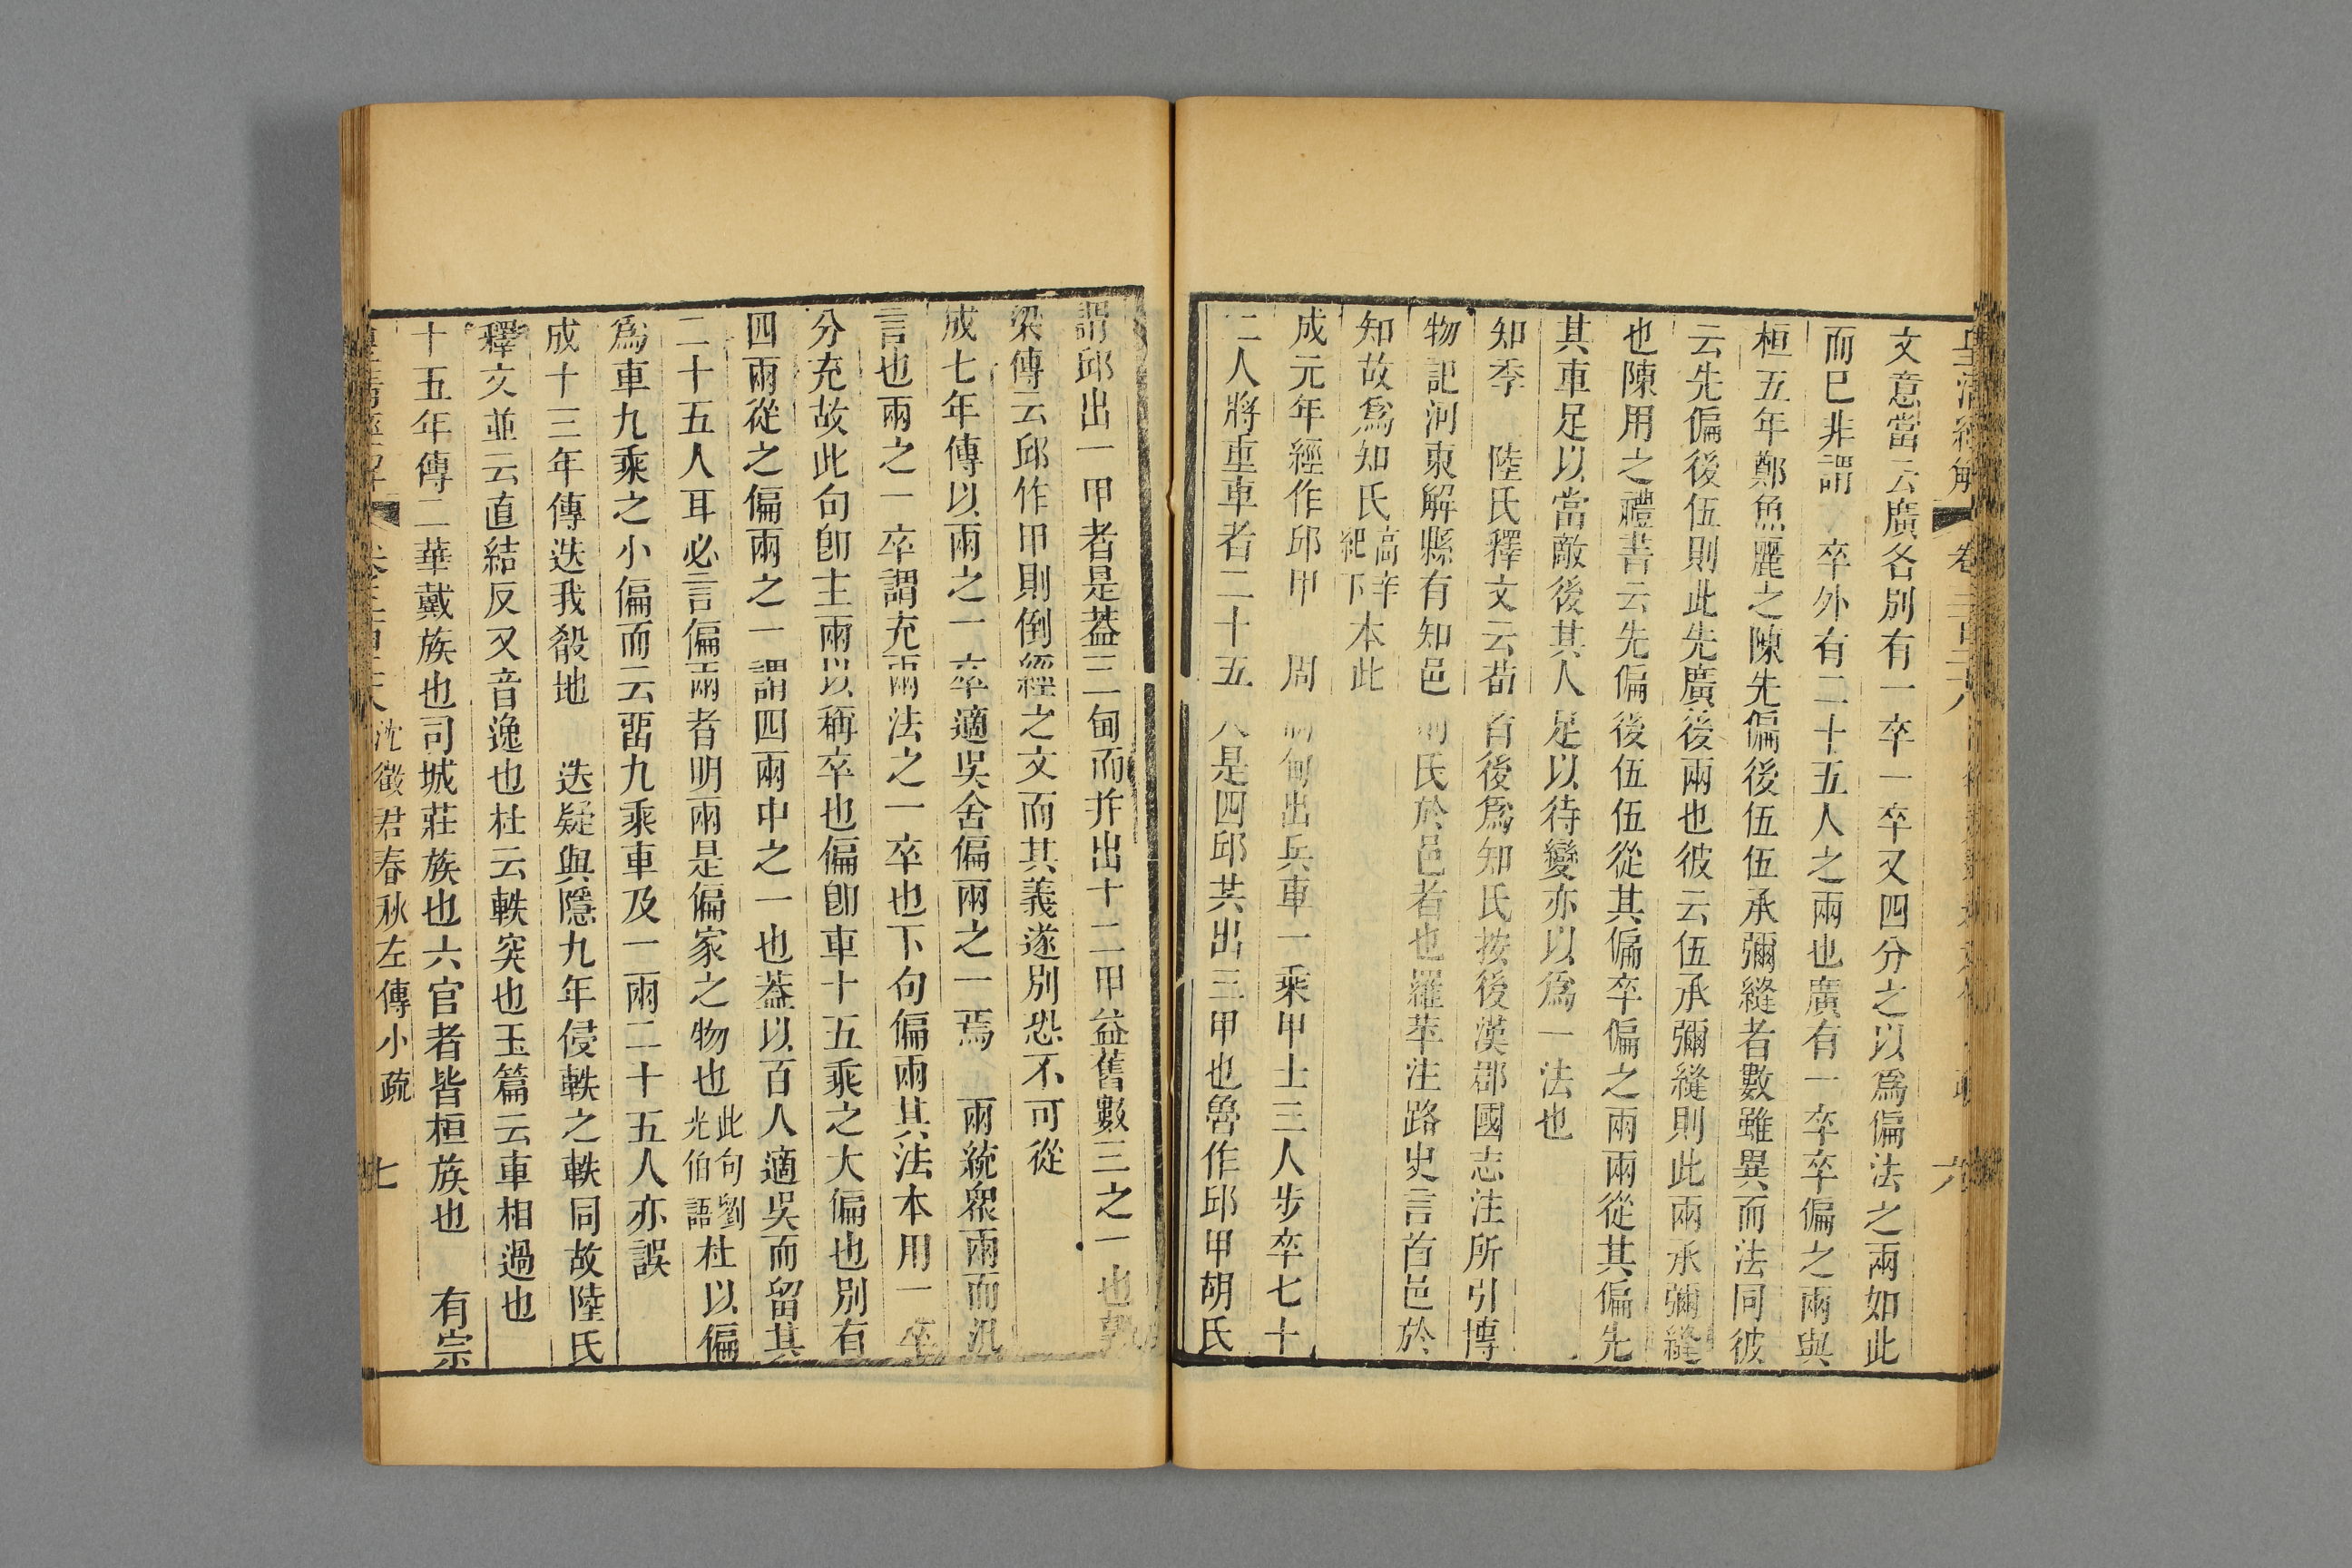 皇清經解 卷三百二十八 六
文意當云廣各別有一卒一卒又四分之以爲偏法之兩如此
而已非謂 卒外有二十五人之兩也廣有一卒卒偏之兩與
桓五年鄭魚麗之陳先偏後伍伍承彌縫者數雖異而法同彼
云先偏後伍則此先廣後兩也彼云伍承彌縫則此兩承彌縫
也陳用之禮書云先偏後伍伍從其偏卒偏之兩兩從其偏先
其車足以當敵後其人足以待變亦以爲一法也
知季 陸氏釋文云荀首後爲知氏按後漢郡國志注所引博
物記河東解縣有知邑 氏於邑者也羅苹注路史言首邑於
知故爲知氏高辛紀下本此
成元年經作邱甲 周 甸出兵車一乘甲士三人步卒七十
二人將重車者二十五人是四邱共出三甲也魯作邱甲胡氏
謂邱出一甲者是葢三甸而并出十二甲益舊數三之一也
梁傳云邱作甲則倒經之文而其義遂別恐不可從
成七年傳以兩之一卒適吳舍偏兩之一焉 兩統衆兩而汎
言也兩之一卒謂充兩法之一卒也下句偏兩其法本用一卒
分充故此句卽主兩以稱卒也偏卽車十五乘之大偏也別有
四兩從之偏兩之一謂四兩中之一也葢以百人適吳而留其
二十五人耳必言偏兩者明兩是偏家之物也此句劉光伯語杜以偏
爲車九乘之小偏而云畱九乘車及一兩二十五人亦誤
成十三年傳迭我殽地 迭疑與隱九年侵軼之軼同故陸氏
釋文並云直結反又音逸也杜云軼突也玉篇云車相過也
十五年傳二華戴族也司城莊族也六官者皆桓族也 有宗
皇清經解 卷三百二十八 沈徵君春秋左傳小疏 七